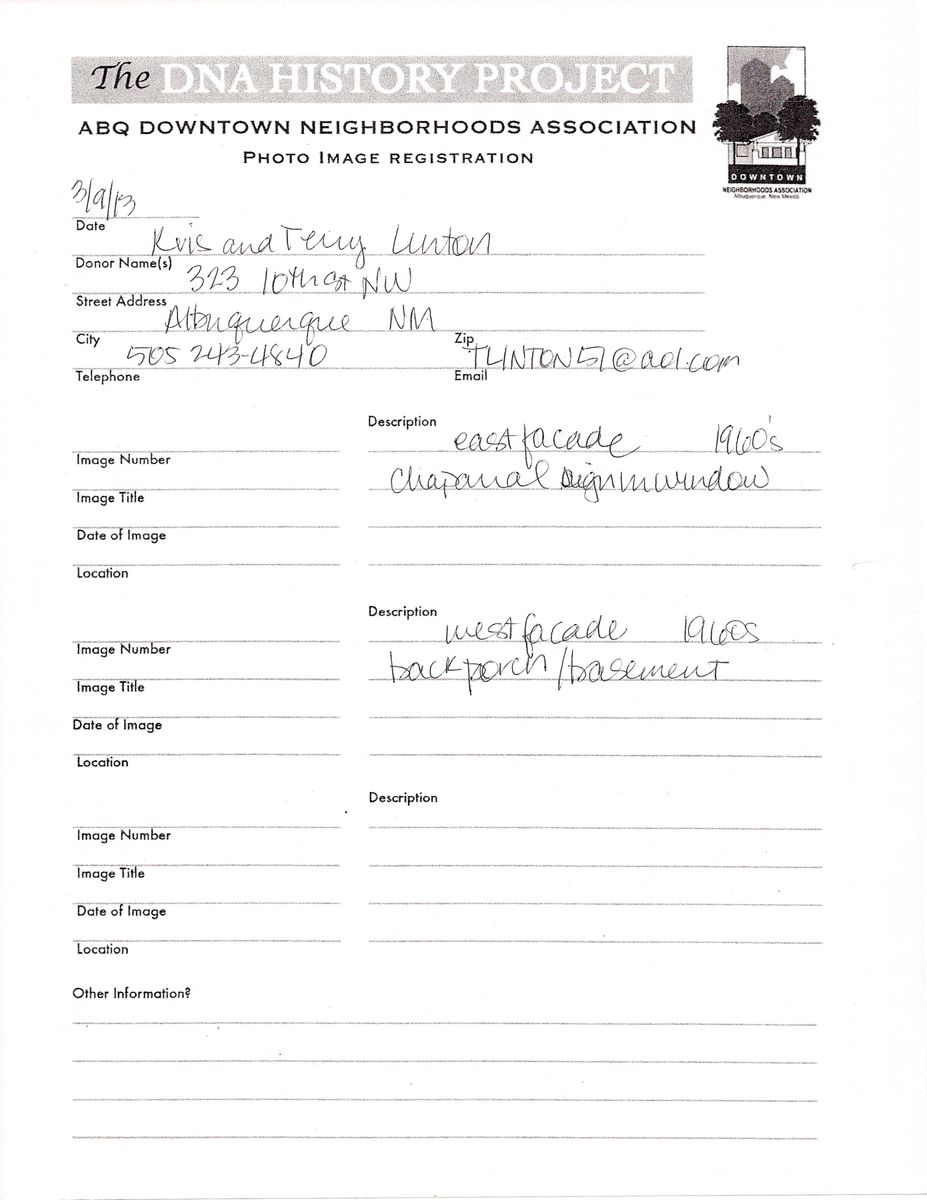 The DNA HISTORY PROJECT
ABQ DOWNTOWN NEIGHBORHOODS ASSOCIATION
PHOTO IMAGE REGISTRATION
DOWNTOWN
NEIGHBORHOODS ASSOCIATION
Albuquerque, New Mexico
3/9/13
Date
Kris and Terry Linton
Donor Name(s)
323 10th St NW
Street Address
Albuquerque NM
City Zip
505 243-4840 TLINTON51@aol.com
Telephone Email
Description
east facade 1960's
Image Number
Chaparral sign in window
Image Title
Date of Image
Location
Description
west facade 1960s
Image Number
back porch/basement
Image Title
Date of Image
Location
Description
Image Number
Image Title
Date of Image
Location
Other Information?